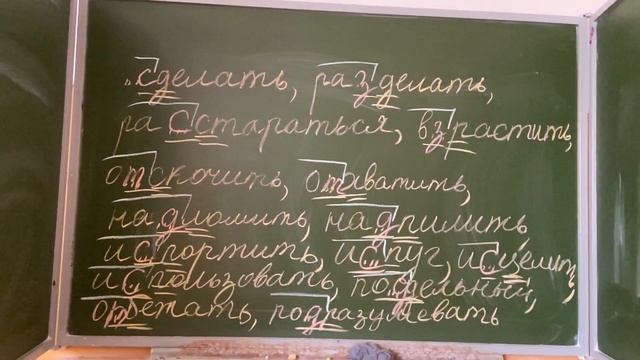 сделать, разделать,
расстараться, взрастить,
отскочить, отхватить,
надломить, надпилить
испортить, испуг, исцелить,
использовать, поддельный,
подразумевать